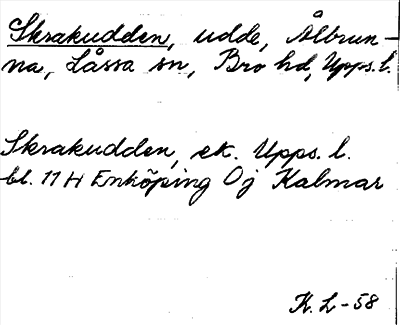 Skrakudden, udde, Ålbrun-
na, Låssa sn, Bro hd, Upps. l.
Skrakudden, ek. Upps. l.
bl. 11 H Enköping Oj Kalmar
K. L-58